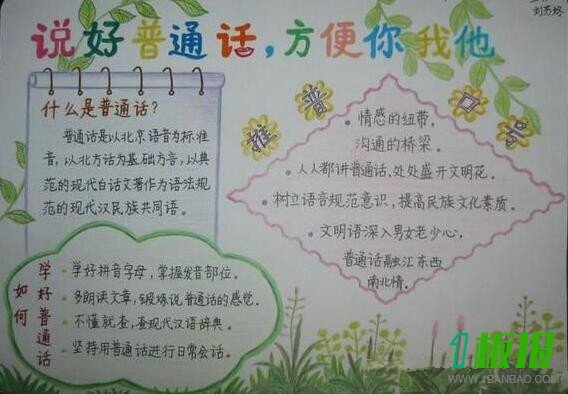 刘芳婷
说好普通话,方便你我他
什么是普通话?
普通话是以北京语音为标准
音,以北方话为基础方言,以典
范的现代白话文著作为语法规
范的现代汉民族共同语。
如何学好普通话
学好拼音字母,掌握发音部位。
多朗读文章,锻炼说普通话的感觉。
不懂就查,查现代汉语辞典。
坚持用普通话进行日常会话。
推普口号
情感的纽带,
沟通的桥梁。
人人都讲普通话,处处盛开文明花。
树立语音规范意识,提高民族文化素质。
文明语深入男女老少心,
普通话融江东西
南北情。
1板报
WWW.1BANBAO.COM